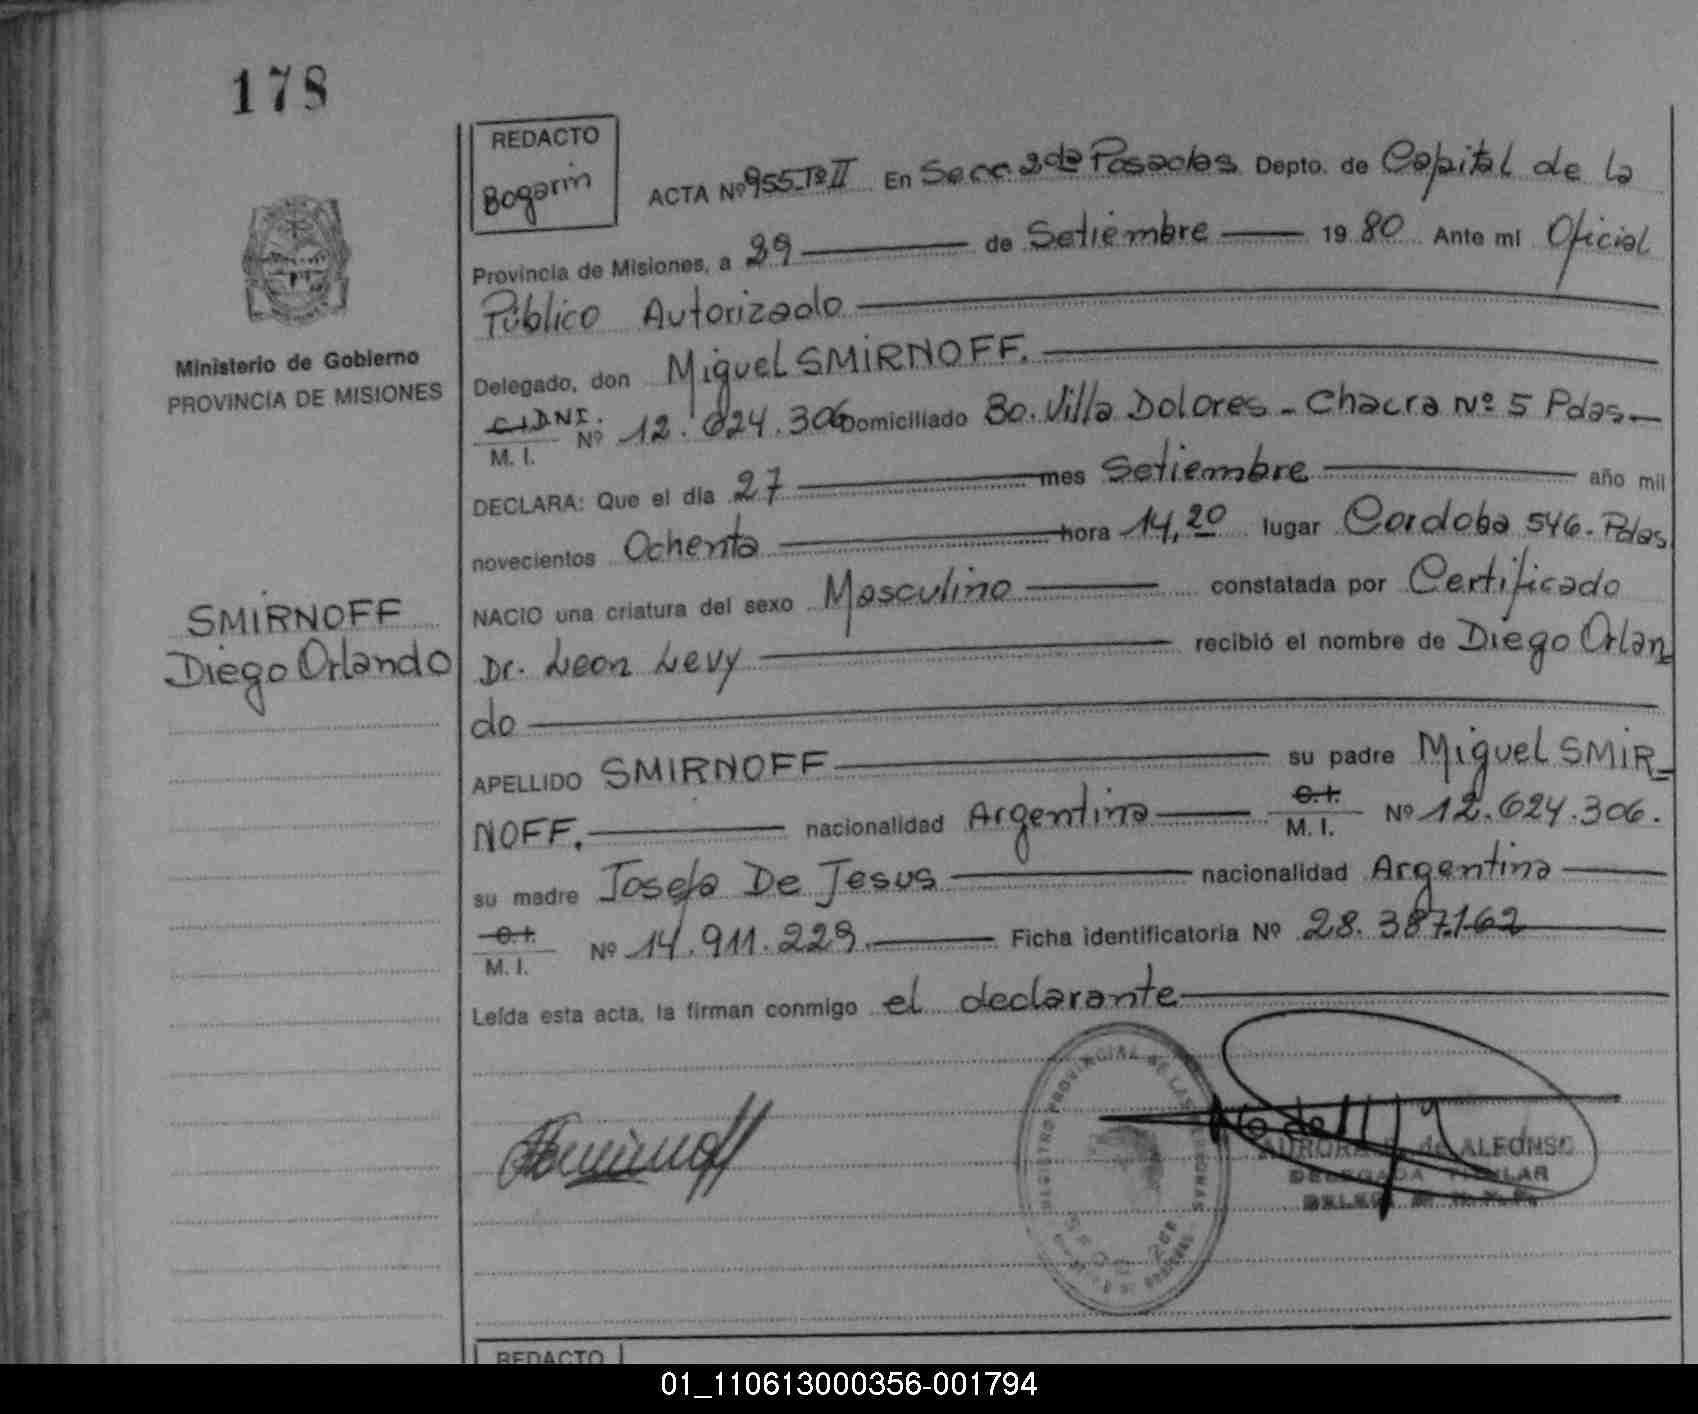 178
REDACTO
Bogarin
ACTA Nº 955-Tº II En Secc. 2da Posadas Depto. de Capital de la
Provincia de Misiones, a 29 de Setiembre 1980 Ante mi Oficial
Público Autorizado
Delegado, don Miguel SMIRNOFF.
C.I. D.N.I.
M. I. Nº 12.624.306 Domiciliado Bo. Villa Dolores - Chacra Nº 5 Pdas
DECLARA: Que el día 27 mes Setiembre año mil
novecientos Ochenta hora 14,20 lugar Cordoba 546. Pdas
NACIO una criatura del sexo Masculino constatada por Certificado
Dr. Leon Levy recibió el nombre de Diego Orlan
do
APELLIDO SMIRNOFF su padre Miguel SMIR_
NOFF. nacionalidad Argentina C.I. M. I. Nº 12.624.306.
su madre Josefa De Jesus nacionalidad Argentina
C.I. M. I. Nº 14.911.229. Ficha identificatoria Nº 28.387.162
Leída esta acta, la firman conmigo el declarante
Ministerio de Gobierno
PROVINCIA DE MISIONES
SMIRNOFF
Diego Orlando
REGISTRO PROVINCIAL DE LAS PERSONAS
de ALFONSO
DELEGADA TITULAR
REDACTO
01_110613000356-001794